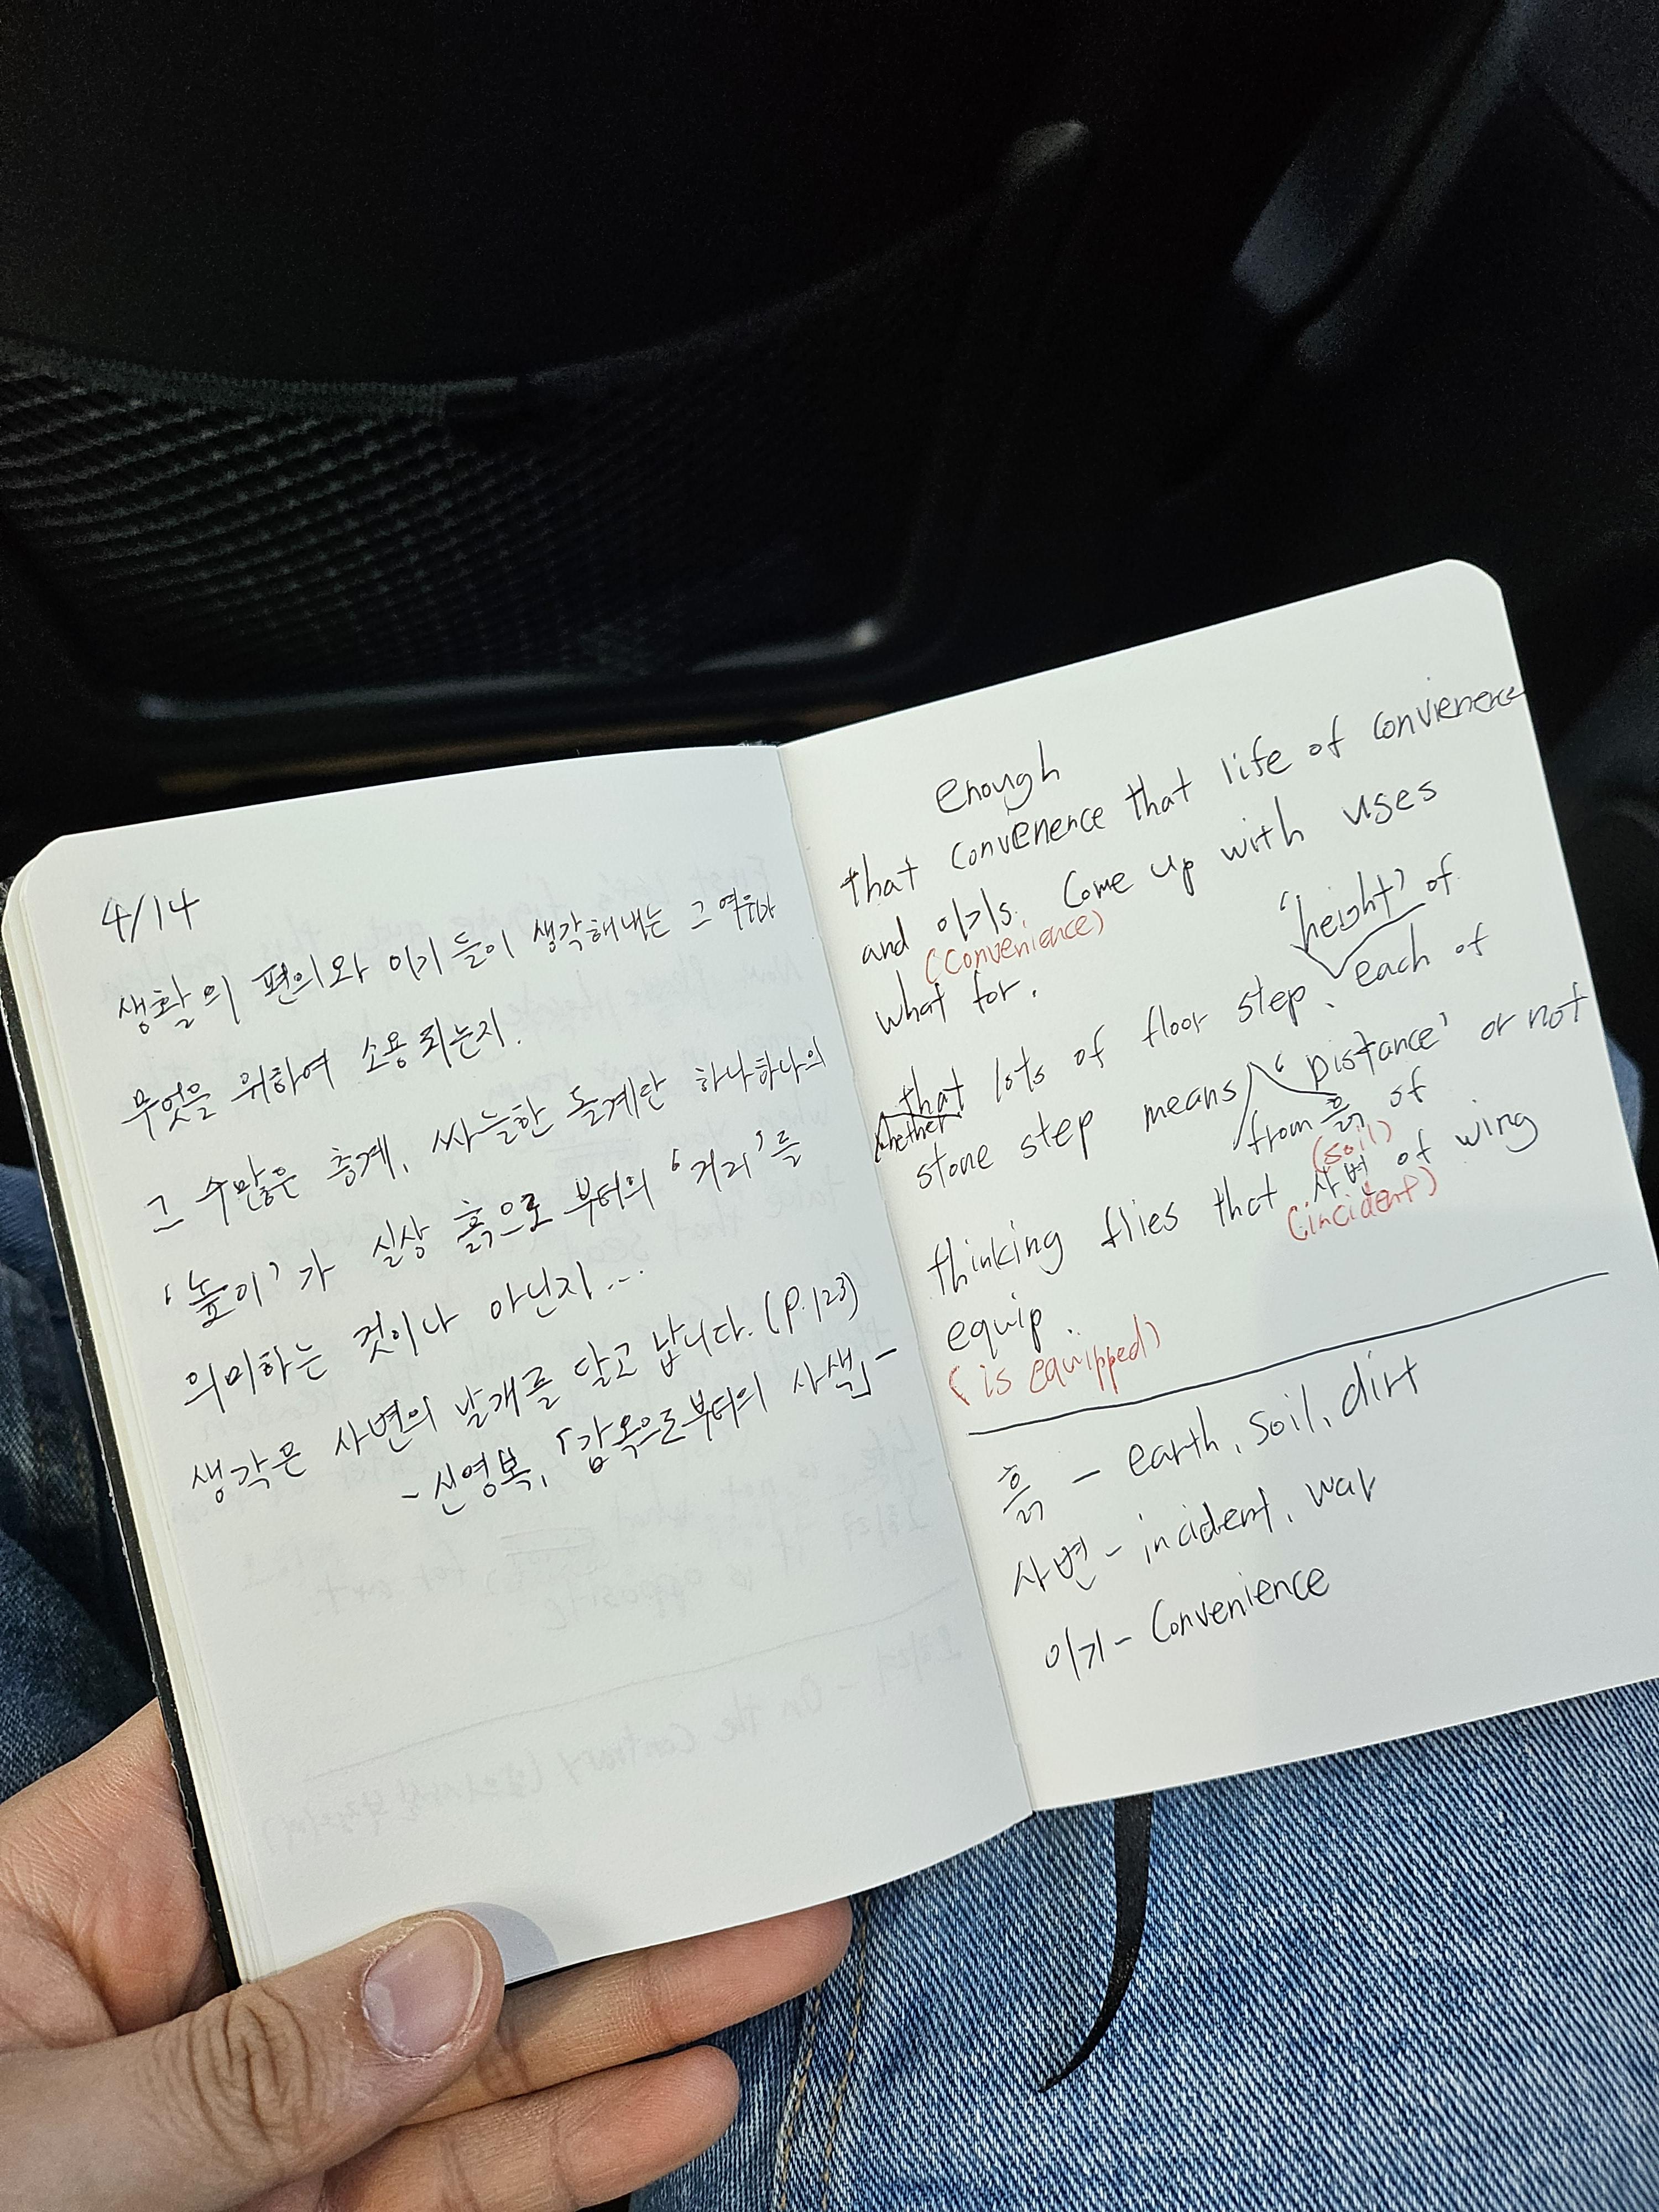 4/14
생활의 편의와 이기들이 생각해내는 그 여유가
무엇을 위하여 소용되는지.
그 수많은 층계, 싸늘한 돌계단 하나하나의
'높이'가 실상 흙으로부터의 '거리'를
의미하는 것이나 아닌지...
생각은 사변의 날개를 달고 납니다. (P.123)
- 신영복, 「감옥으로부터의 사색」-
enough
that convenence that life of convienence
and 이기s. Come up with uses
(convenience)
what for.
'height' of
that lots of floor step. each of
whether
stone step means 'Distance' or not
from 흙 of
(soil)
thinking flies that 사변 of wing
(incident)
equip
(is equipped)
흙 - earth, soil, dirt
사변 - incident, war
이기 - Convenience